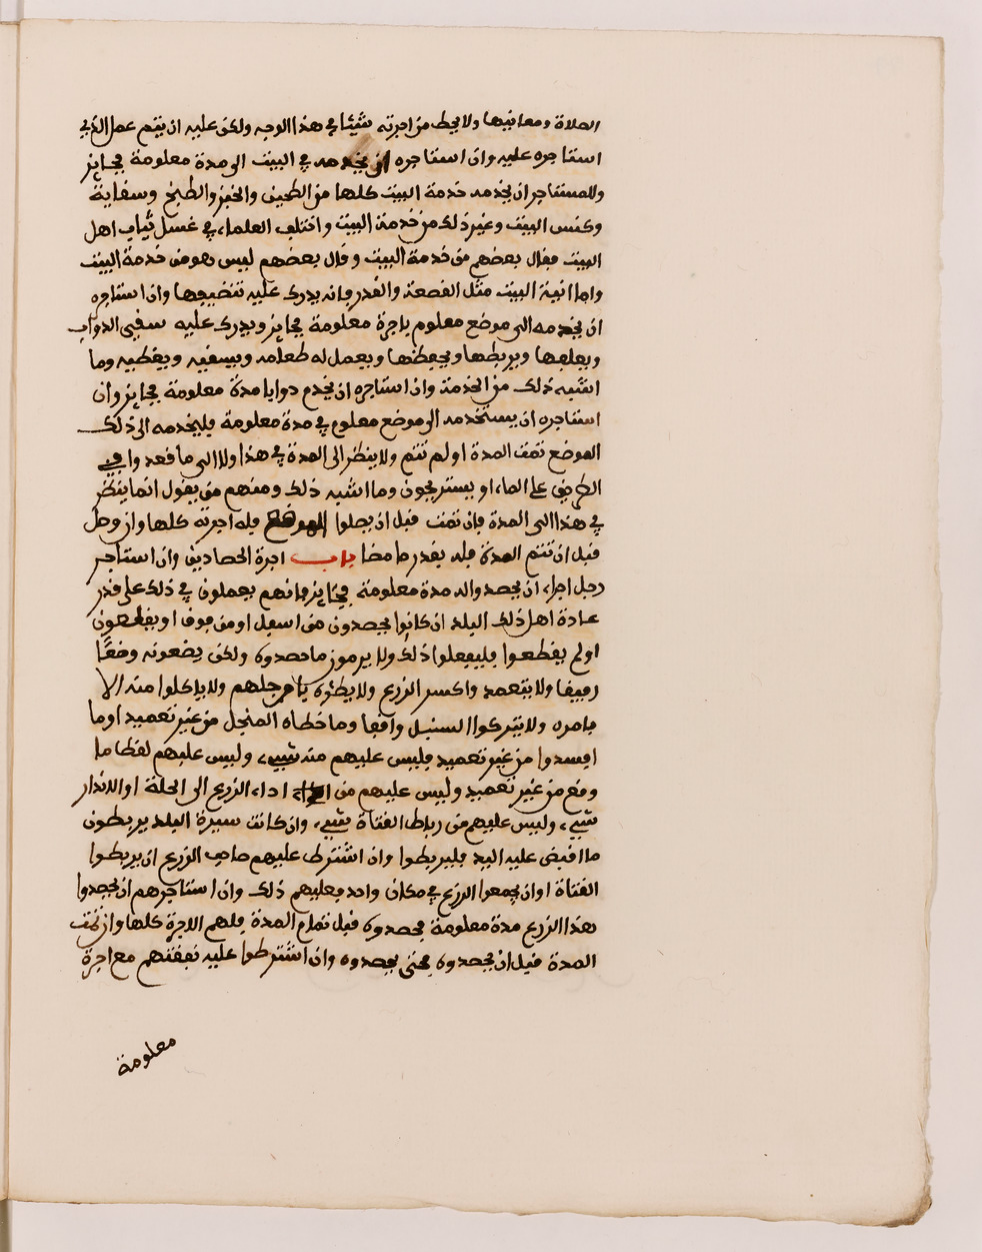 الصلاة ومعانيها ولا يحط من اجرته شيئا في هذا الوجه ولكن عليه ان يتم عمل الذي
استاجره عليه وان استاجره ان يخدمه في البيت الى مدة معلومة فجايز
وللمستاجر ان يخدمه خدمة البيت كلها من الطحين والخبز والطبخ وسقاية
وكنس البيت وغير ذلك من خدمة البيت واختلف العلماء في غسل ثياب اهل
البيت فقال بعضهم من خدمة البيت وقال بعضهم ليس هو من خدمة البيت
واما انية البيت مثل القصعة والقدر فانه يدرك عليه تنضيفها وان استاجره
ان يخدمه الى موضع معلوم باجرة معلومة فجايز ويدرك عليه سقي الدواب
ويعلفها ويربطها ويحفظها ويعمل له طعامه ويسقيه ويغطيه وما
اشبه ذلك من الخدمة وان استاجره ان يخدم دوابا مدة معلومة فجايز وان
استاجره ان يستخدمه الى موضع معلوم في مدة معلومة فليخدمه الى ذلك
الموضع تمت المدة او لم تتم ولا ينظر الى المدة في هذا ولا الى ما قعد وا في
الطريق على الماء او يستريحون وما اشبه ذلك ومنهم من يقول انما ينظر
في هذا الى المدة فان تمت قبل ان يصلوا الموضع فله اجرته كلها وان وصل
قبل ان تتم المدة فله بقدر ما مضا باب اجرة الحصادين وان استاجر
رجل اجراء ان يحصدوا له مدة معلومة فجايز فانهم يعملون في ذلك على قدر
عادة اهل ذلك البلد ان كانوا يحصدون من اسفل او من فوق او يقطعون
او لم يقطعوا فليفعلوا ذلك ولا يرموز ما حصدوه ولكن يضعونه وضعًا
رفيقا ولا يتعمد واكسر الزرع ولا يطئوه بارجلهم ولا ياكلوا منه الا
بامره ولا يتركوا السنبل واقفا وما خطاه المنجل من غير تعميد او ما
افسدوا من غير تعميد فليس عليهم منه شيء وليس عليهم لقط ما
وقع من غير تعميد وليس عليهم من اداء الزرع الى الحلة او الاندار
شيء وليس عليهم من رباط الفتاة شيء وان كانت سيرة البلد يربطون
ما اقبض عليه اليد فليربطوا وان اشترط عليهم صاحب الزرع ان يربطوا
الفتاة او ان يجمعوا الزرع في مكان واحد فعليهم ذلك وان استاجرهم ان يحصدوا
هذا الزرع مدة معلومة فحصدوه قبل تمام المدة فلهم الاجرة كلها وان تمت
المدة قبل ان يحصدوه فحتى يحصدوه وان اشترطوا عليه نفقتهم مع اجرة
معلومة